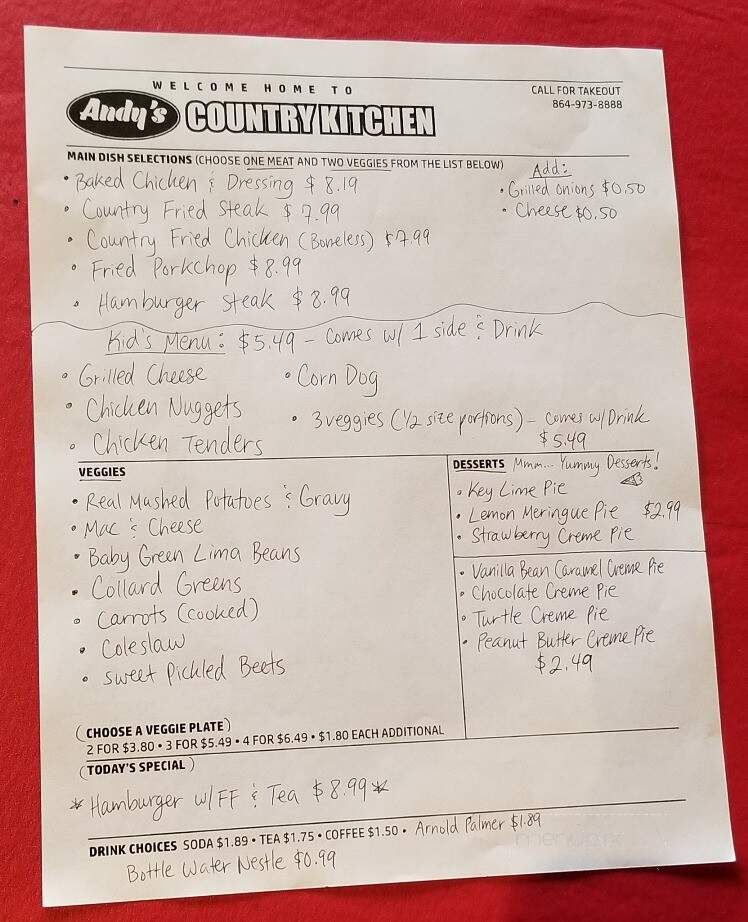 WELCOME HOME TO
Andy's COUNTRY KITCHEN
CALL FOR TAKEOUT
864-973-8888
MAIN DISH SELECTIONS (CHOOSE ONE MEAT AND TWO VEGGIES FROM THE LIST BELOW)
• Baked Chicken & Dressing $8.19
• Country Fried Steak $7.99
• Country Fried Chicken (Boneless) $7.99
• Fried Porkchop $8.99
• Hamburger Steak $8.99
Add:
• Grilled Onions $0.50
• Cheese $0.50
Kid's Menu: $5.49 - Comes w/ 1 side & Drink
• Grilled Cheese
• Chicken Nuggets
• Chicken Tenders
• Corn Dog
• 3 veggies (1/2 size portions) - Comes w/ Drink
$5.49
VEGGIES
• Real Mashed Potatoes & Gravy
• Mac & Cheese
• Baby Green Lima Beans
• Collard Greens
• Carrots (cooked)
• Coleslaw
• Sweet Pickled Beets
DESSERTS Mmm... Yummy Desserts!
• Key Lime Pie
• Lemon Meringue Pie $2.99
• Strawberry Creme Pie
• Vanilla Bean Caramel Creme Pie
• Chocolate Creme Pie
• Turtle Creme Pie
• Peanut Butter Creme Pie
$2.49
(CHOOSE A VEGGIE PLATE)
2 FOR $3.80 • 3 FOR $5.49 • 4 FOR $6.49 • $1.80 EACH ADDITIONAL
(TODAY'S SPECIAL)
* Hamburger w/FF & Tea $8.99 *
DRINK CHOICES SODA $1.89 • TEA $1.75 • COFFEE $1.50 • Arnold Palmer $1.89
Bottle Water Nestle $0.99